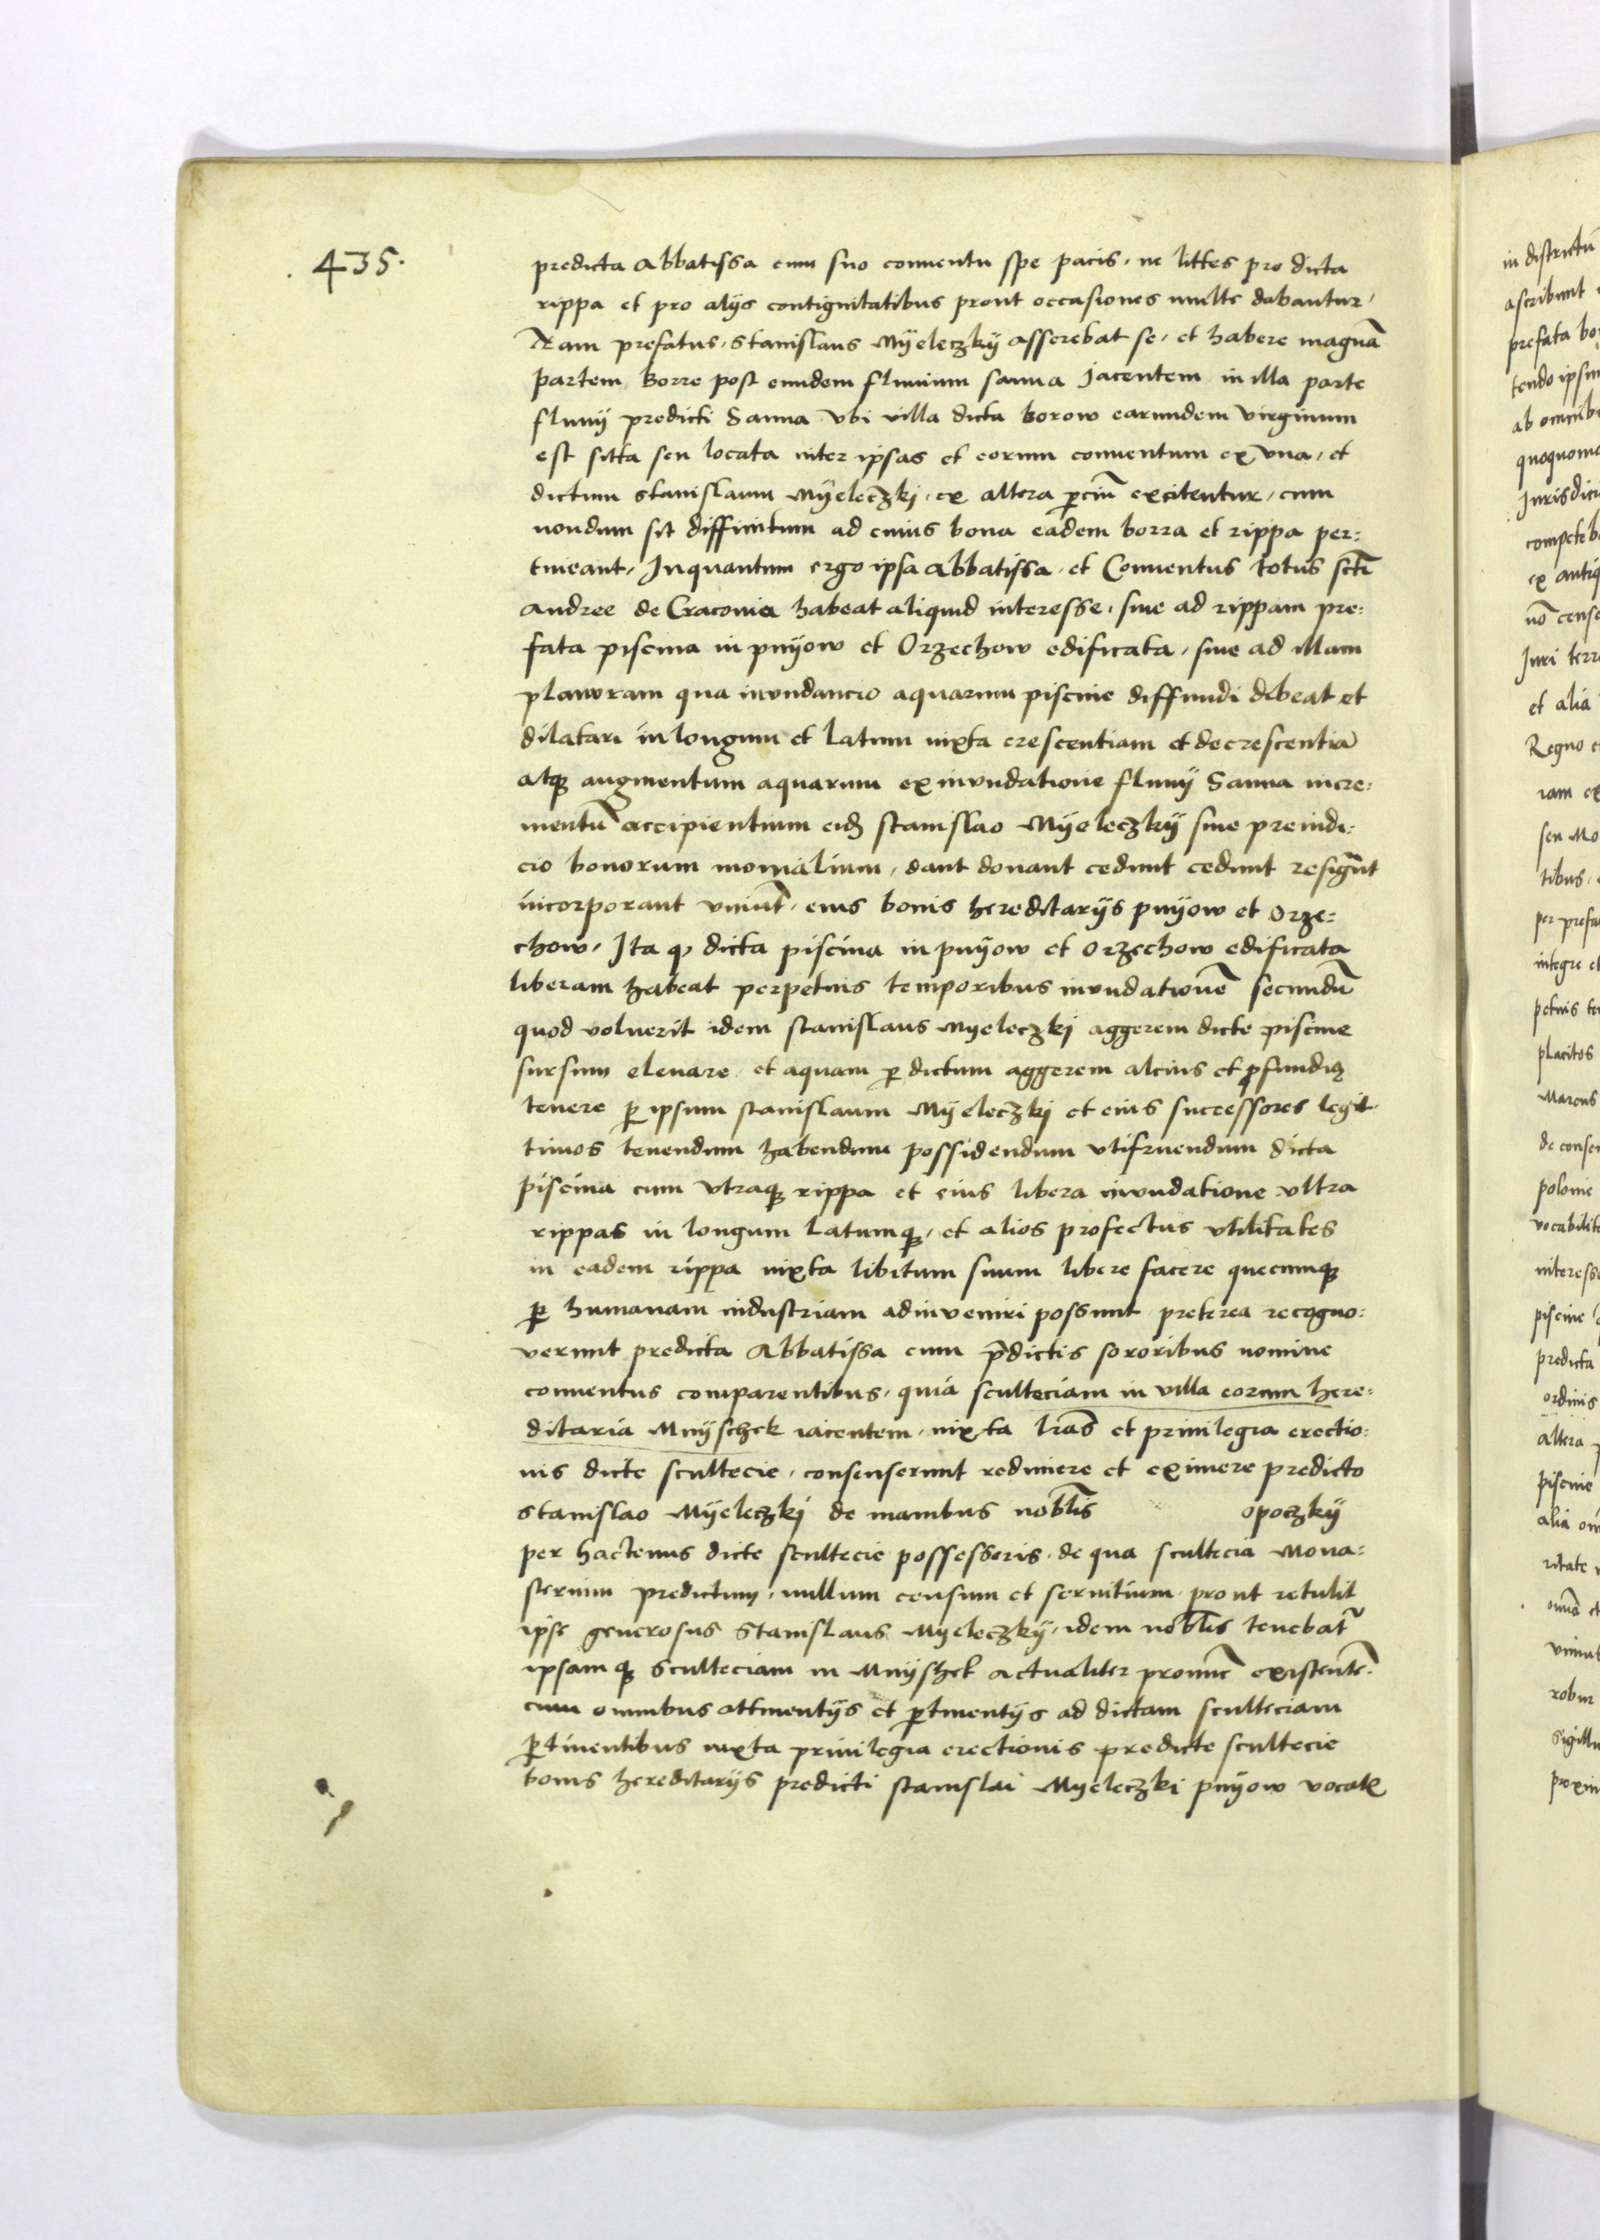 . 435.
predicta Abbatissa cum suo conuentu spe pacis. ne littes pro dicta
rippa et pro alijs contignitatibus prout occasiones multe dabantur,
Nam prefatus. Stanislaus Myeleczky asserebat se. et habere magnā
partem Borre post eundem fluuium sanna Jacentem in illa parte
fluuij predicti Sanna vbi villa dicta Borow earundem virginum
est sitta seu locata inter ipsas et eorum conuentum ex vna. et
dictum stanislaum Myeleczki. ex altera ꝑciū excitentur. cum
nondum sit diffinitum ad cuius bona eadem borra et rippa per:
tineant. Inquantum ergo ipsa Abbatissa. et Conuentus totus scti
Andree de Cracouia habeat aliquid interesse. siue ad rippam pre:
fata piscina in pnyow et Orzechow edificata. siue ad illam
planoram qua inundancio aquarum piscine diffundi debeat et
dilatari in longum et latum iuxta crescentiam et decrescentiā
atqꝫ augmentum aquarum ex inundatione fluuij Sanna incre:
mentū accipientium eidꝫ stanislao Myeleczky siue preiudi:
cio bonorum monialium. dant donant cedunt cedunt resignāt
incorporant vniūt. eius bonis hereditarijs pnyow et Orze:
chow. Ita ꝙ dicta piscina in pnyow et orzechow edificata
liberam habeat perpetuis temporibus inundationē secundū
quod voluerit idem stanislaus Myeleczkj aggerem dicte piscine
sursum eleuare. et aquam ꝑ dictum aggerem alcius et ꝓfundiꝫ
tenere ꝑ ipsum stanislaum Myeleczkj et eius successores legit
timos tenendum habendum possidendum vtifruendum dicta
piscina cum vtraqꝫ rippa et eius libera inundatione vltra
rippas in longum latumqꝫ. et alios profectus vtilitates
in eadem rippa iuxta libitum suum libere facere quecunqꝫ
ꝑ humanam industriam adinveniri possunt. preterea recogno:
verunt predicta Abbatissa cum p̄dictis sororibus nomine
conuentus comparentibus. quia sculteciam in villa eorum here:
ditaria Mnyschek iacentem. iuxta lr̄as et priuilegia erectio:
nis dicte scultecie. consenserunt redimere et eximere predicto
stanislao Myeleczkj de manibus nobl̄is opoczky
per hactenus dicte scultecie possessoris. de qua scultecia Mona:
sterium predictum. nullum censum et seruitium. prout retulit
ipse generosus Stanislaus Myeleczky. idem nobl̄is tenebat̄
ipsamqꝫ Sculteciam in Mnyshek actualiter pronūc existente.
cum omnibus attinentijs et ꝑtinentijs ad dictam sculteciam
ꝑtinentibus iuxta priuilegia erectionis predicte scultecie
bonis hereditarijs predicti stanislai Myeleczki pnyow vocatꝭ
in districtū
ascribunt
prefata bo
tendo ipsum
ab omnibu
quoquomo
Jurisdici
competeb
ex antiq
nō cense
Juri terr
et alia
Regno e
iam ex
seu Mo
tibus.
per prefa
integre et
petuis te
placitos
Marcus
de conse
polonie
vocabilit
interess
piscine
predicta
ordinis
altera p
piscine
alia om
ritate
omīa et
vniunt
robur
Sigillu
proxim